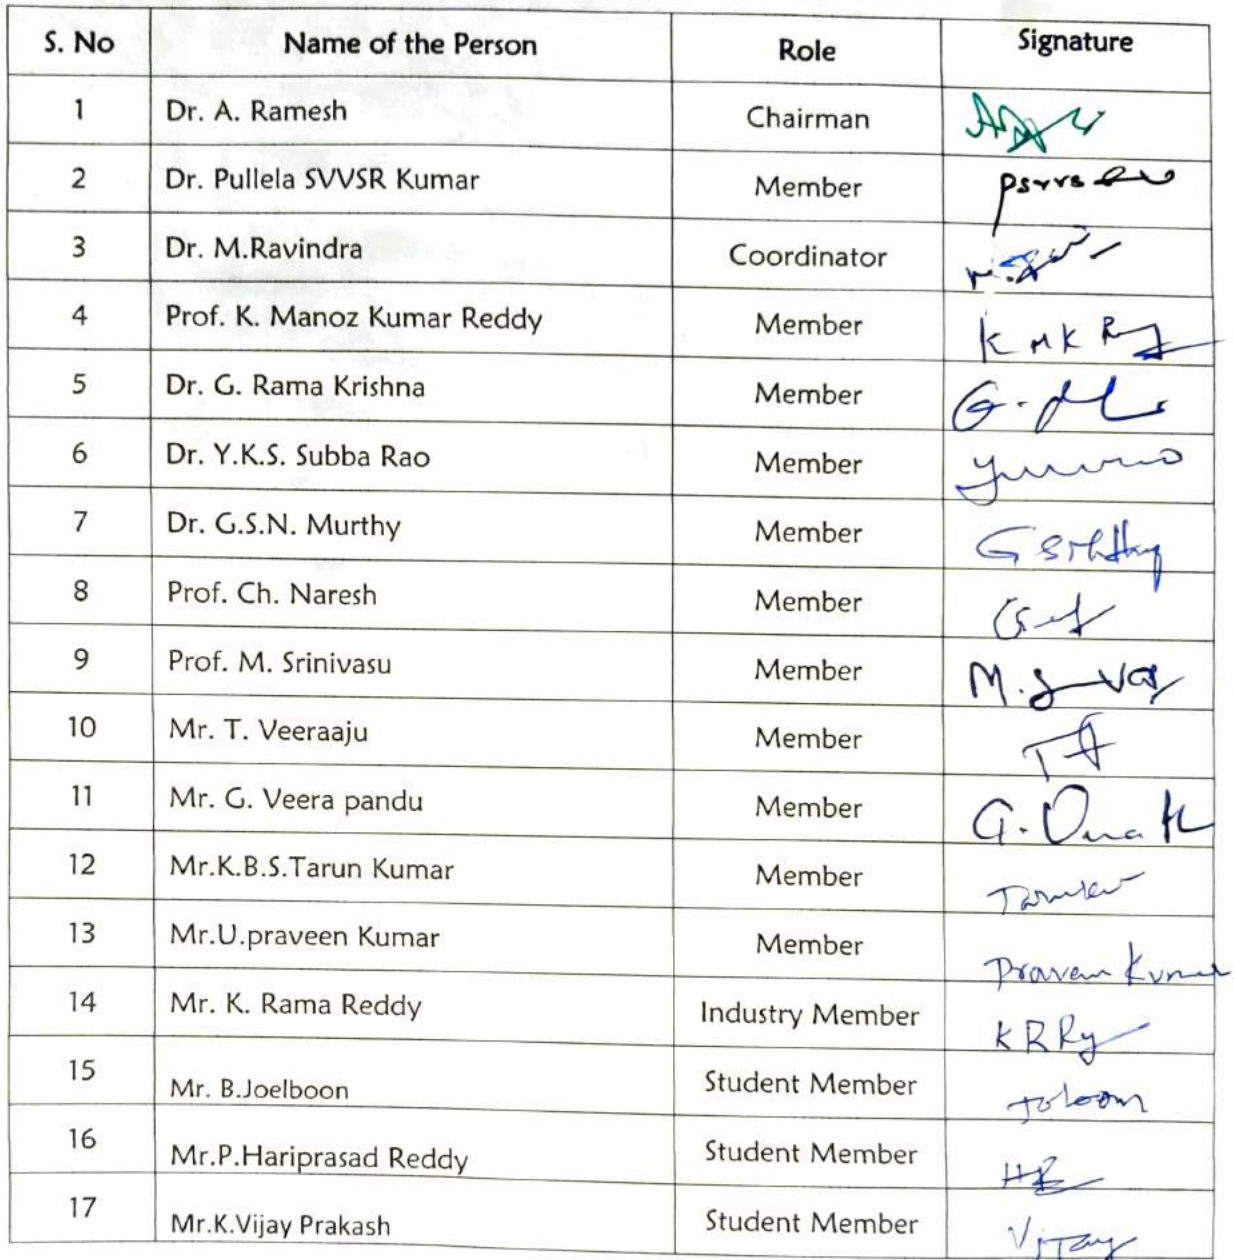 S. No Name of the Person Role Signature
1 Dr. A. Ramesh Chairman
2 Dr. Pullela SVVSR Kumar Member
3 Dr. M.Ravindra Coordinator
4 Prof. K. Manoz Kumar Reddy Member K M K
5 Dr. G. Rama Krishna Member
6 Dr. Y.K.S. Subba Rao Member
7 Dr. G.S.N. Murthy Member
8 Prof. Ch. Naresh Member
9 Prof. M. Srinivasu Member
10 Mr. T. Veeraaju Member
11 Mr. G. Veera pandu Member
12 Mr.K.B.S.Tarun Kumar Member
13 Mr.U.praveen Kumar Member Praveen Kumar
14 Mr. K. Rama Reddy Industry Member K R Ry
15 Mr. B.Joelboon Student Member
16 Mr.P.Hariprasad Reddy Student Member
17 Mr.K.Vijay Prakash Student Member Vijay